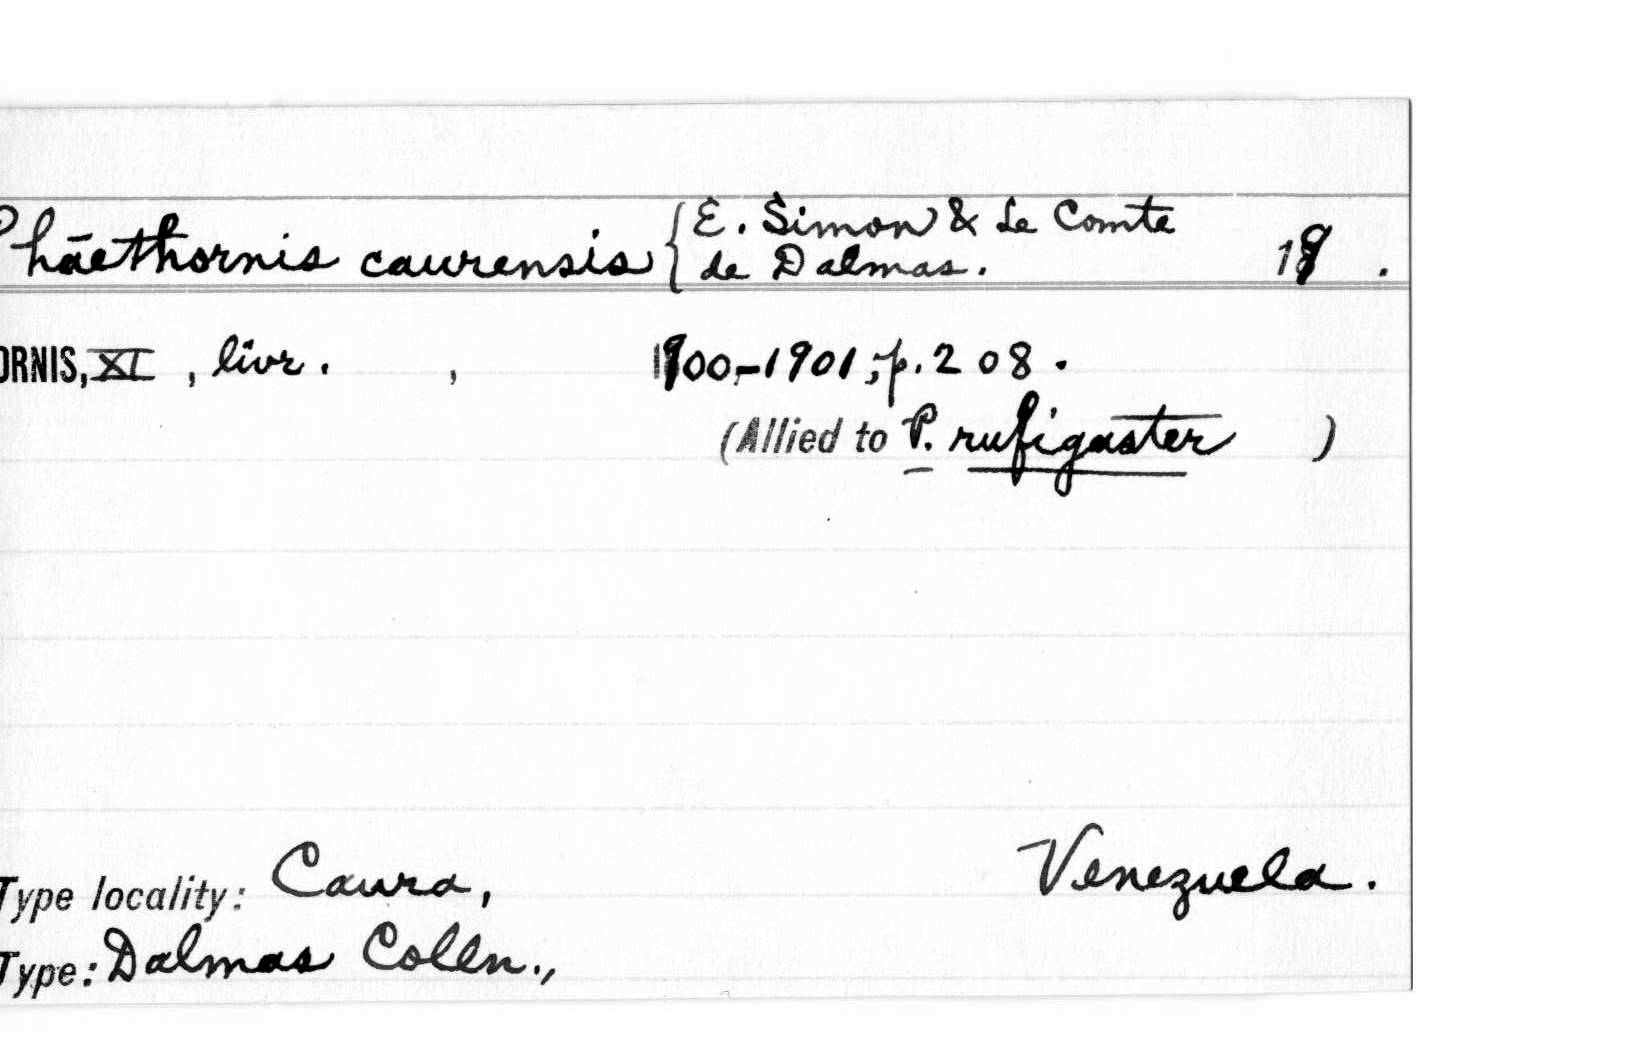 Phāethornis caurensis { E. Simon & Le Comte
de Dalmas. 19 .
ORNIS, XI , livr. , 1900,-1901, ; p. 208.
(Allied to P. rufigaster )
Type locality: Caura, Venezuela.
Type: Dalmas Colln.,